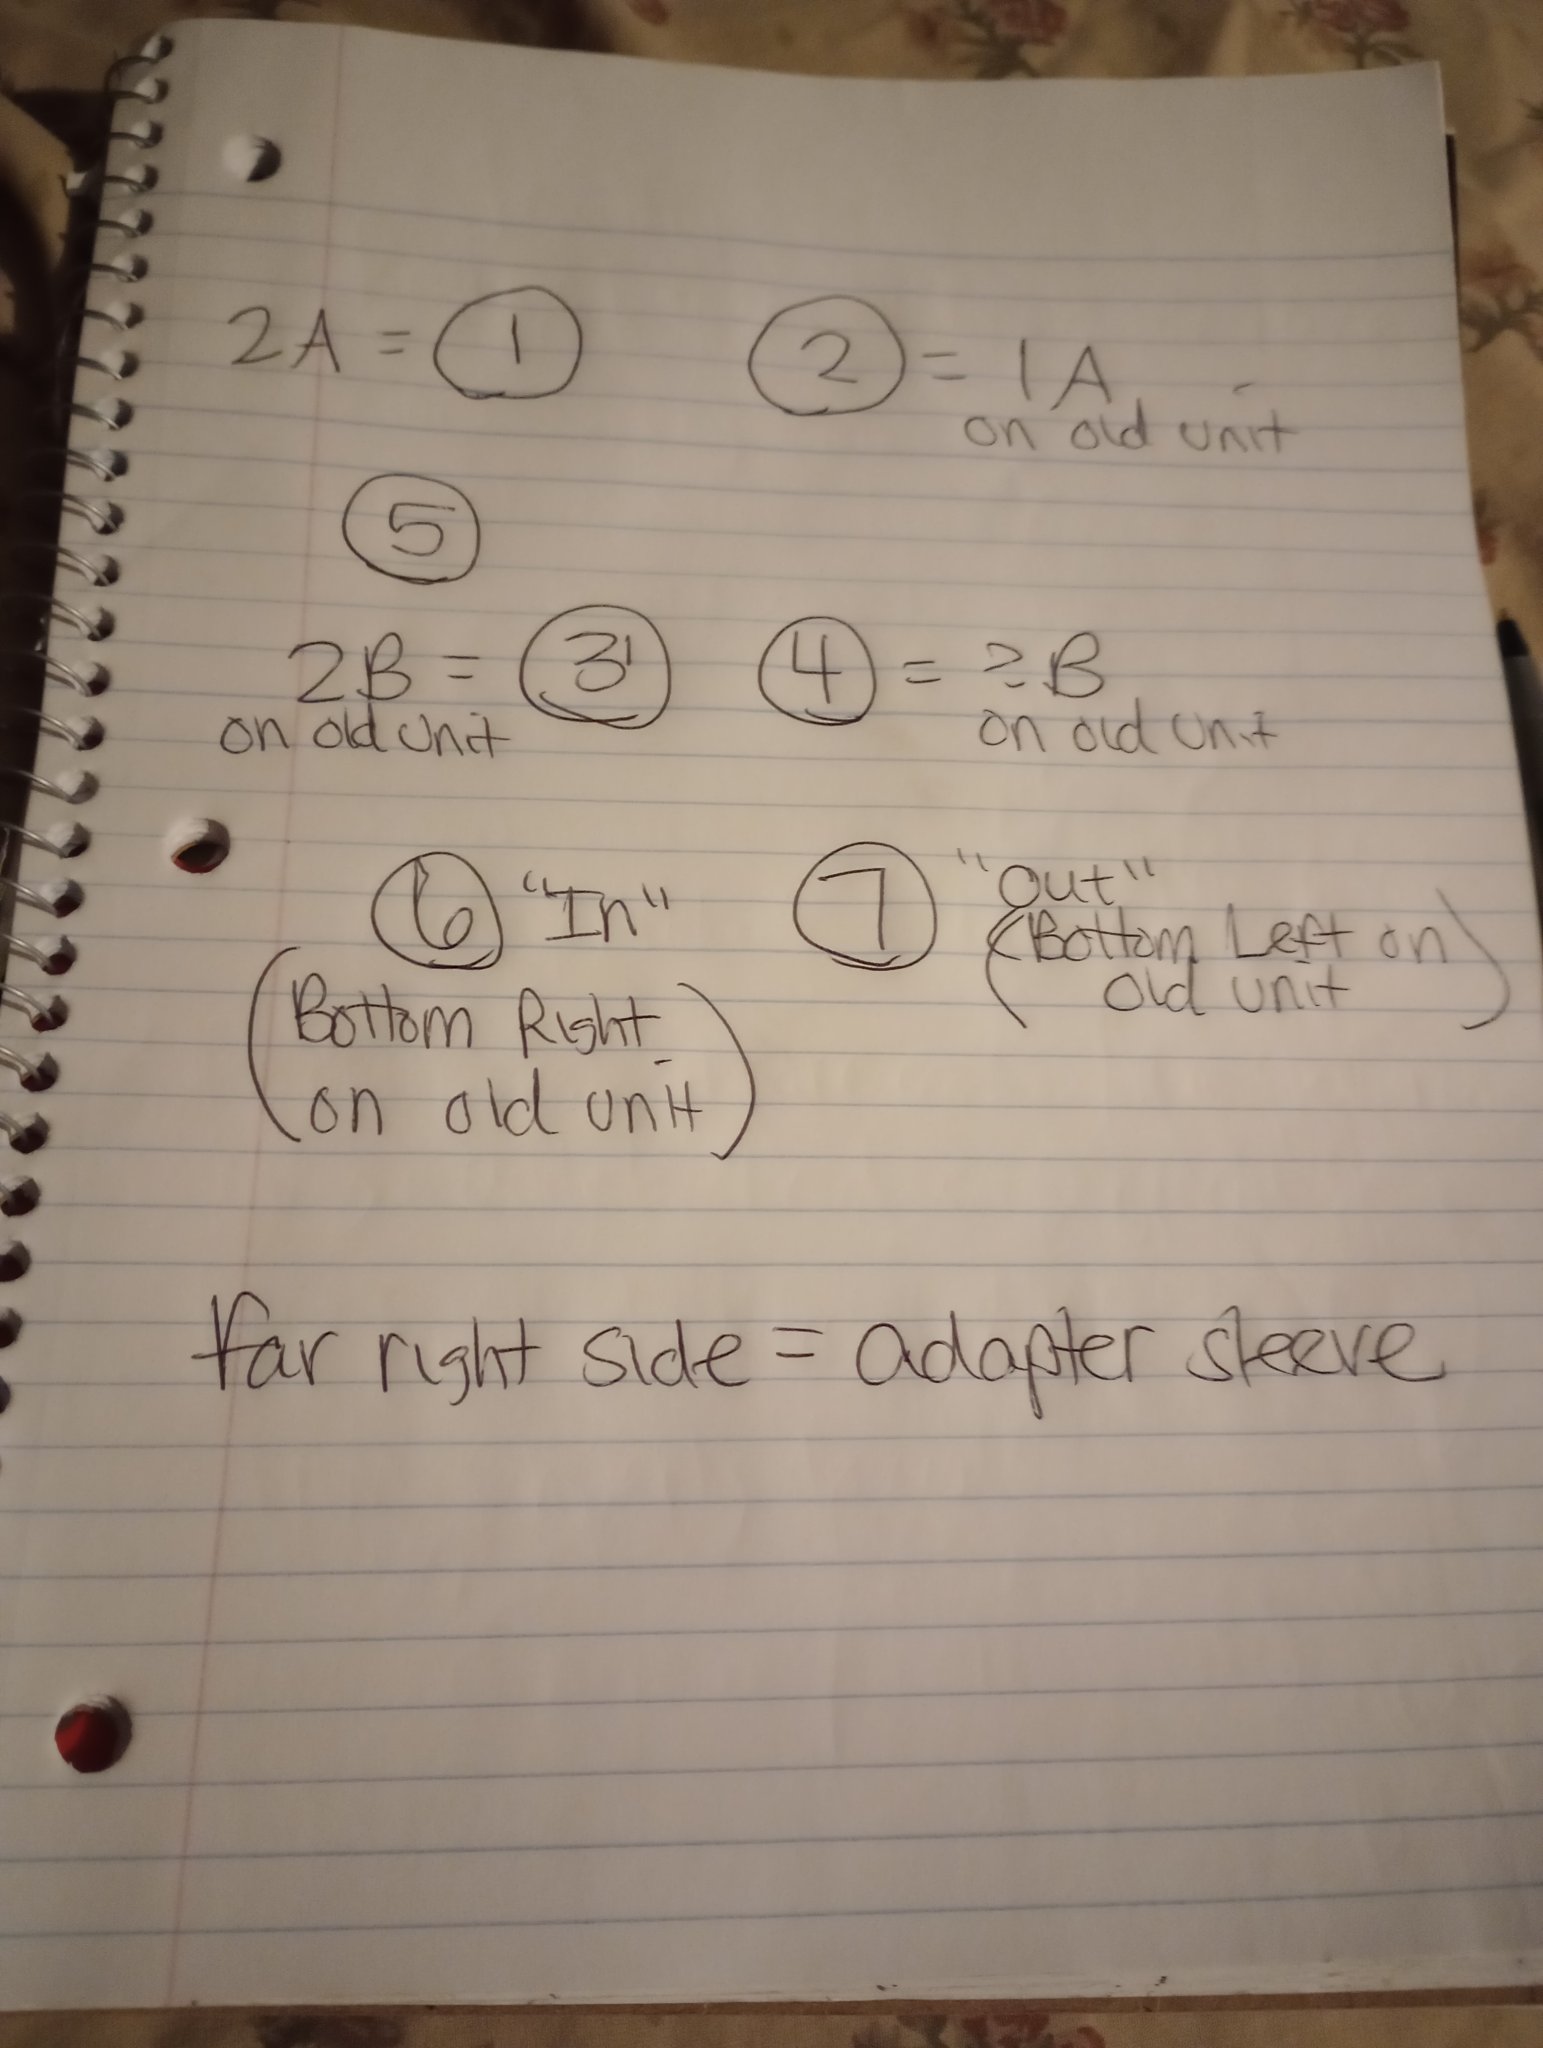 2A = 1 2 = 1A
on old unit
5
2B = 3 4 = ?B
on old unit on old unit
6 "In" 7 "Out"
(Bottom Left on
old unit)
(Bottom Right
on old unit)
far right side = adapter sleeve